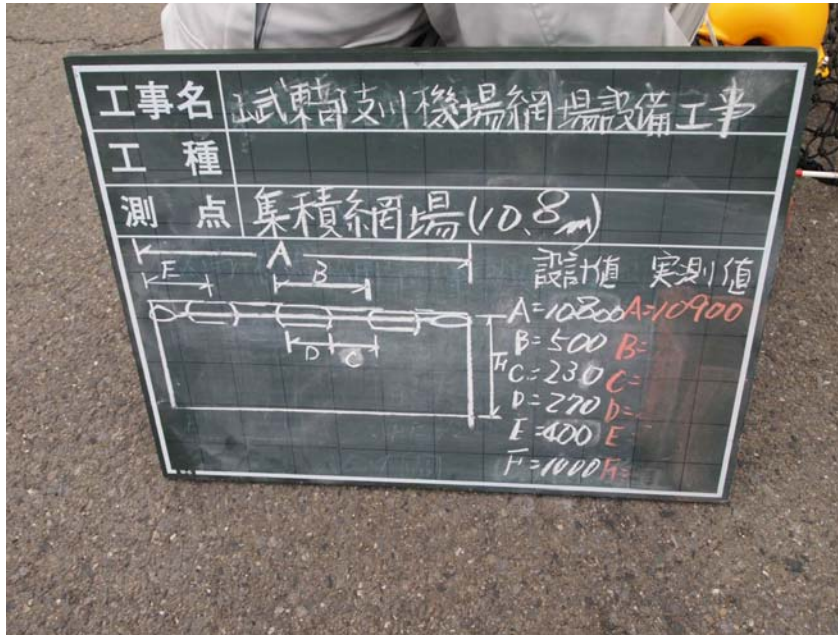 工事名 山武東部支川機場網場設備工事
工種
測点 集積網場(10.8m)
A
E B
D C
F
設計値 実測値
A=10800 A=10900
B=500 B=
C=230 C=
D=270 D=
E=400 E=
F=1000 F=